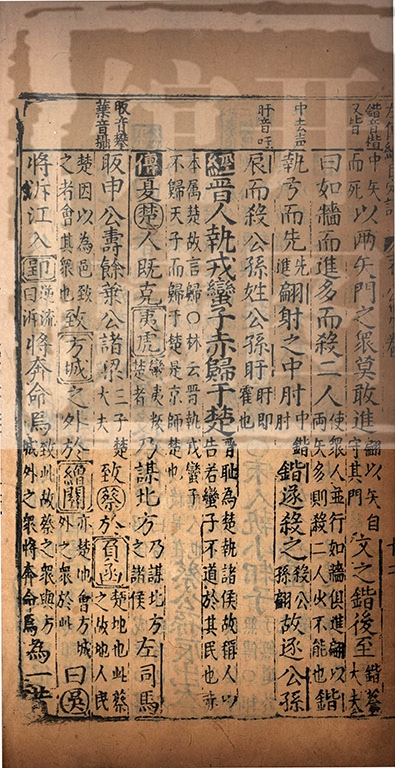 鍇音楷
又皆
中矢而死以兩矢門之眾莫敢進翩以矢自守其門文之鍇後至鍇蔡大夫
曰如牆而進多而殺二人使眾人並行如牆俱進翩以兩矢多則殺二人必不能也鍇
中去聲
執弓而先先進翩射之中肘中鍇肘鍇遂殺之殺公孫翩故逐公孫
盱音吁
辰而殺公孫姓公孫盱盱即霍也
經晉人執戎蠻子赤歸于楚晉恥為楚執諸侯故稱人以告若蠻子不道於其民也赤
本屬楚故言歸○林云晉執戎蠻子不歸天子而歸于楚是京師楚也
傳夏楚人既克夷虎蠻夷叛楚者乃謀北方乃謀北方之諸侯左司馬
眅音攀
葉音攝
眅申公壽餘葉公諸梁三子楚大夫致蔡於負函楚地也此蔡之故地人民
楚因以為邑致之者會其眾也致方城之外於繒關亦楚地也會方城外之眾於此曰吳
將泝江入郢逆流曰泝將奔命焉致此故蔡之眾與方城外之眾將奔命焉為一昔